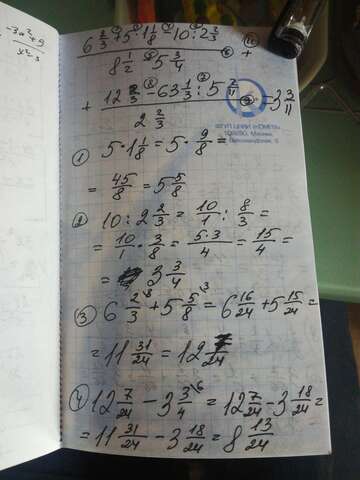 -3a²+9
6 2/3 + 5·1 1/8 - 10 : 2 2/3
8 1/2 - 5 3/4
+
+ 12 2/3 - 6·3 1/3 : 5 = 3 3/11
2 2/3
ФГУП ЦНИИ «КОМЕТА»
① 5·1 1/8 = 5·9/8 =
= 45/8 = 5 5/8
② 10 : 2 2/3 = 10/1 : 8/3 =
= 10/1 · 3/8 = 5·3/4 = 15/4 =
= 3 3/4
③ 6 2/3 + 5 5/8 = 6 16/24 + 5 15/24 =
= 11 31/24 = 12 7/24
④ 12 7/24 - 3 3/4 = 12 7/24 - 3 18/24 =
= 11 31/24 - 3 18/24 = 8 13/24